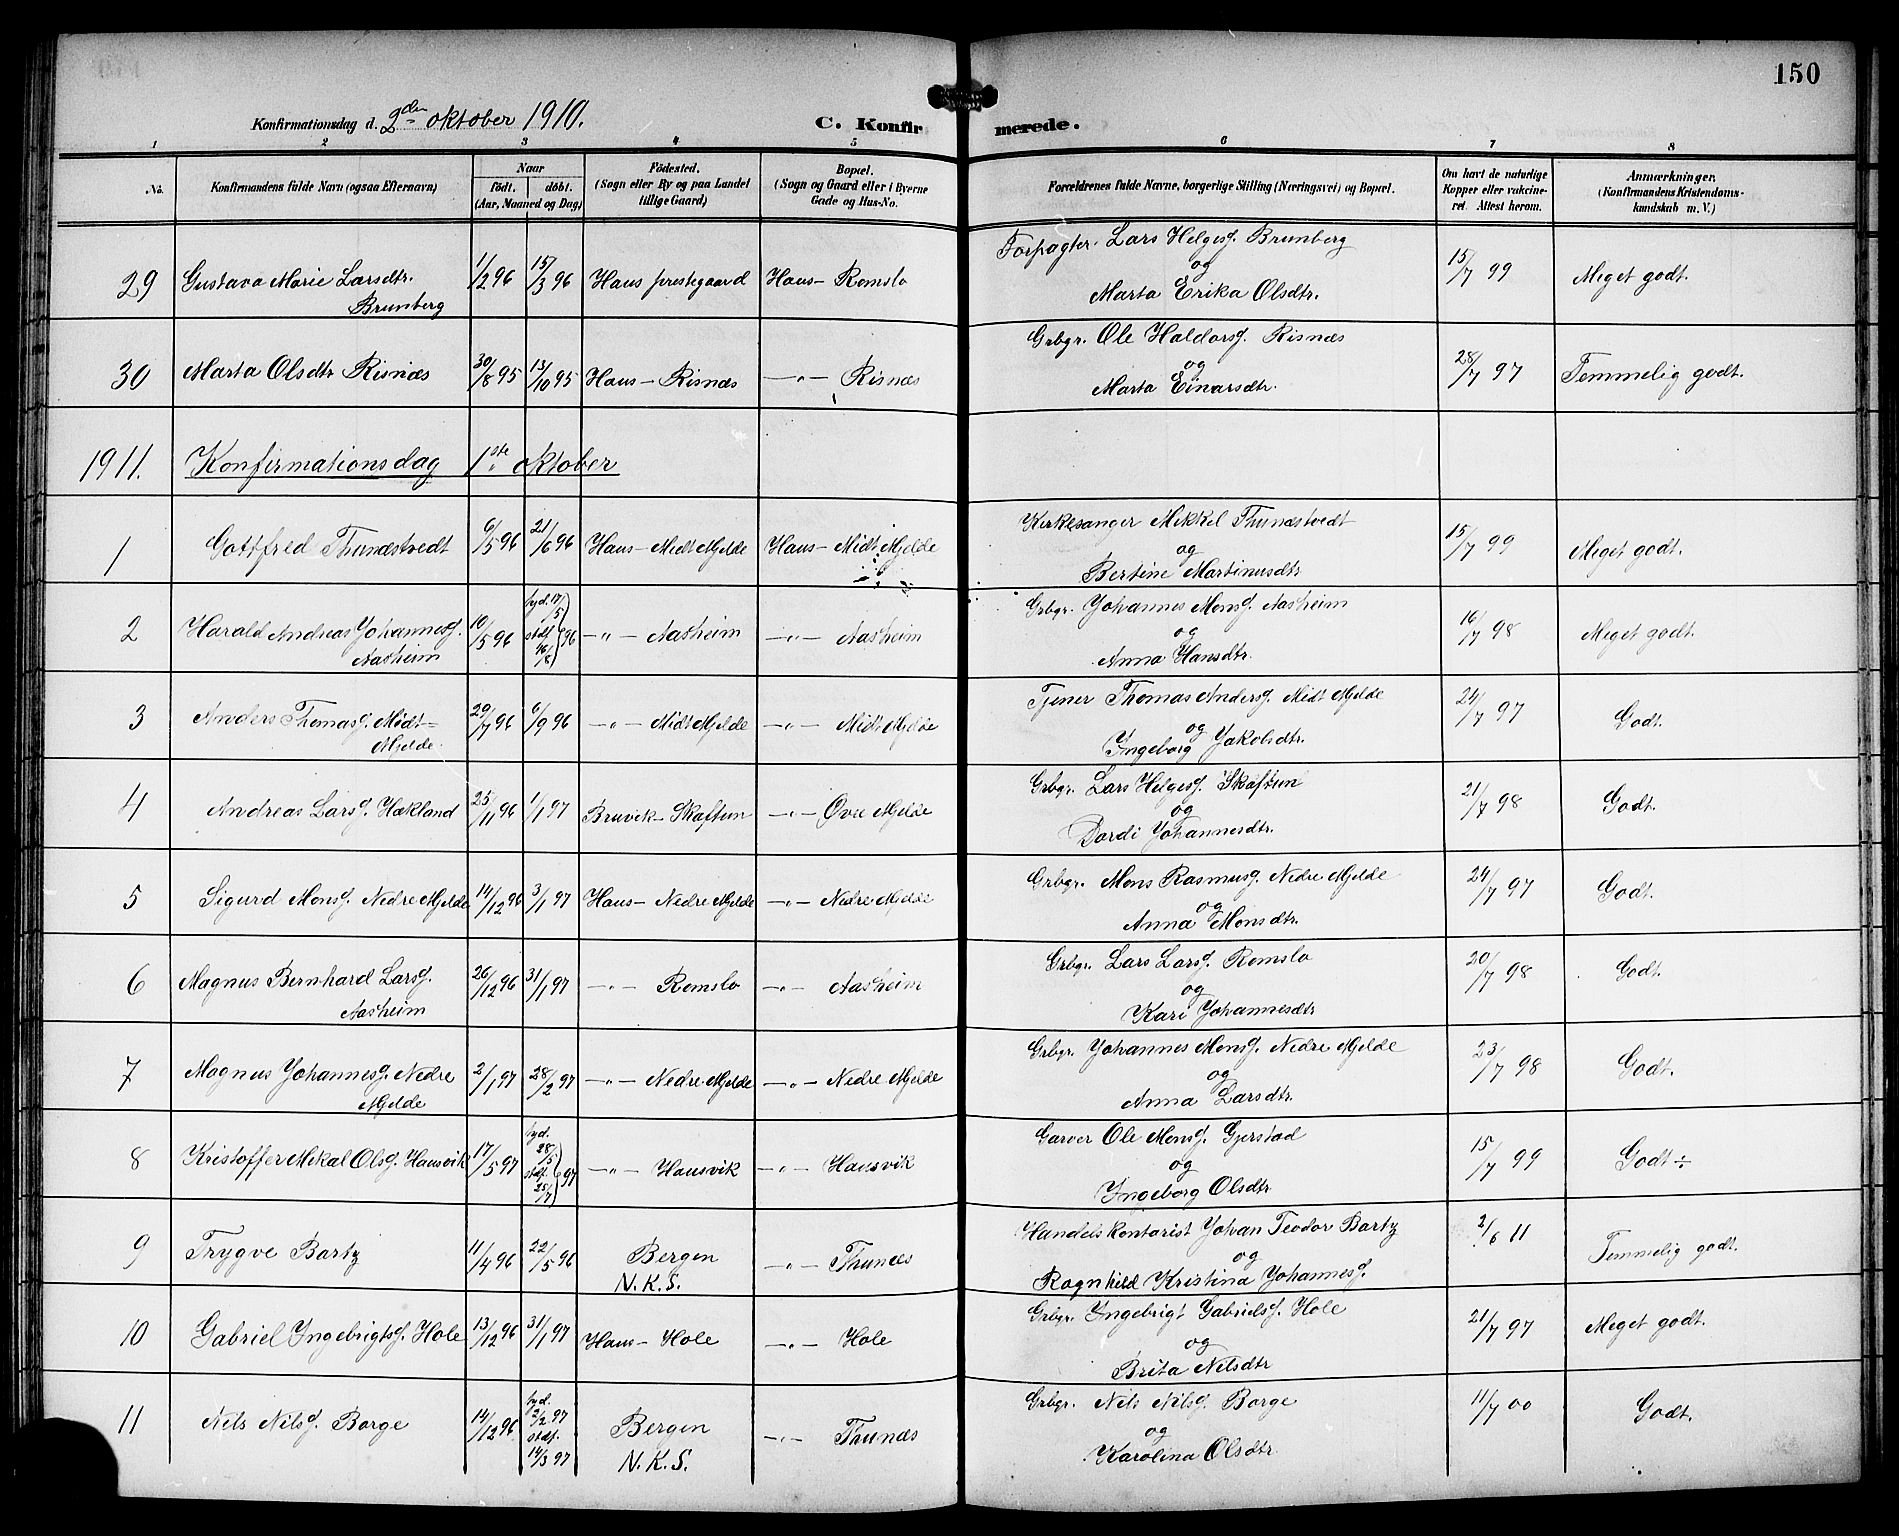 150
Konfirmationsdag d. 2den oktober 1910. C. Konfirmerede.
1 2 3 4 5 6 7 8
No. Konfirmandens fulde Navn (ogsaa Efternavn) Naar født. døbt. (Aar, Maaned og Dag) Fødested. (Sogn eller By og paa Landet tillige Gaard) Bopæl. (Sogn og Gaard eller i Byerne Gade og Hus-No. Forældrenes fulde Navne, borgerlige Stilling (Næringsvei) og Bopæl. Om havt de naturlige Kopper eller vakcineret. Attest herom. Anmærkninger. (Konfirmandens Kristendomskundskab m. V.)
29 Gustava Marie Larsdtr. Brunberg 1/2 96 15/3 96 Haus prestegaard Haus – Romslo Forpagter Lars Helgesg. Brunberg og Marta Erika Olsdtr. 15/7 99 Meget godt.
30 Marta Olsdtr Risnæs 30/8 95 13/10 95 Haus – Risnæs –„– Risnæs Grbgr. Ole Haldorsg. Risnæs og Marta Einarsdtr. 28/7 97 Temmelig godt.
1911. Konfirmationsdag 1ste oktober
1 Gottfred Thunæstvedt 6/5 96 21/6 96 Haus – Midt Mjelde Haus – Midt Mjelde Kirkesanger Mikkel Thunæstvedt og Bertine Martinusdtr 15/7 99 Meget godt.
2 Harald Andreas Johannesg. Aasheim 10/5 96 hjd. 17/5 stdf. 16/8 96 –„– Aasheim –„– Aasheim Grbgr. Johannes Monsg. Aasheim og Anna Hansdtr. 16/7 98 Meget godt.
3 Anders Thomasg. Midt= Mjelde. 29/7 96 6/9 96 –„– Midt Mjelde –„– Midt Mjelde Tjener Thomas Andersg. Midt Mjelde og Ingeborg Jakobsdtr. 24/7 97 Godt.
4 Andreas Larsg. Hækland 25/11 96 1/1 97 Bruvik – Skaftun –„– Øvre Mjelde Grbgr. Lars Helgesg. Skaftun og Dordi Johannesdtr. 21/7 98 Godt.
5 Sigurd Monsg. Nedre Mjelde 14/12 96 3/1 97 Haus – Nedre Mjelde –„– Nedre Mjelde Grbgr. Mons Rasmusg. Nedre Mjelde og Anna Monsdtr. 24/7 97 Godt.
6 Magnus Bernhard Larsg. Aasheim 26/12 96 31/1 97 –„– Romslo –„– Aasheim Grbgr. Lars Larsg. Romslo og Kari Johannesdtr 20/7 98 Godt.
7 Magnus Johannesg. Nedre Mjelde 2/1 97 28/2 97 –„– Nedre Mjelde –„– Nedre Mjelde Grbgr. Johannes Monsg. Nedre Mjelde og Anna Larsdtr. 23/7 98 Godt.
8 Kristoffer Mikal Olsg. Hausvik 17/5 97 hjd. 28/5 stdf. 25/7 97 –„– Hausvik –„– Hausvik Garver Ole Monsg. Gjerstad og Ingeborg Olsdtr 15/7 99 Godt ÷
9 Trygve Bartz 11/4 96 22/5 96 Bergen N.K.S. –„– Thunæs Handelskontorist Johan Teodor Bartz og Ragnhild Kristina Johannesg. 2/6 11 Temmelig godt.
10 Gabriel Ingebrigtsg. Hole 13/12 96 31/1 97 Haus – Hole –„– Hole Grbgr. Ingebrigt Gabrielsg. Hole og Brita Nilsdtr 21/7 97 Meget godt.
11 Nils Nilsg. Borge 14/12 96 hjd. 2/2 97 stdf. 14/3 97 Bergen N.K.S. –„– Thunæs Grbgr. Nils Nilsg. Borge og Karolina Olsdtr. 11/7 00 Godt.